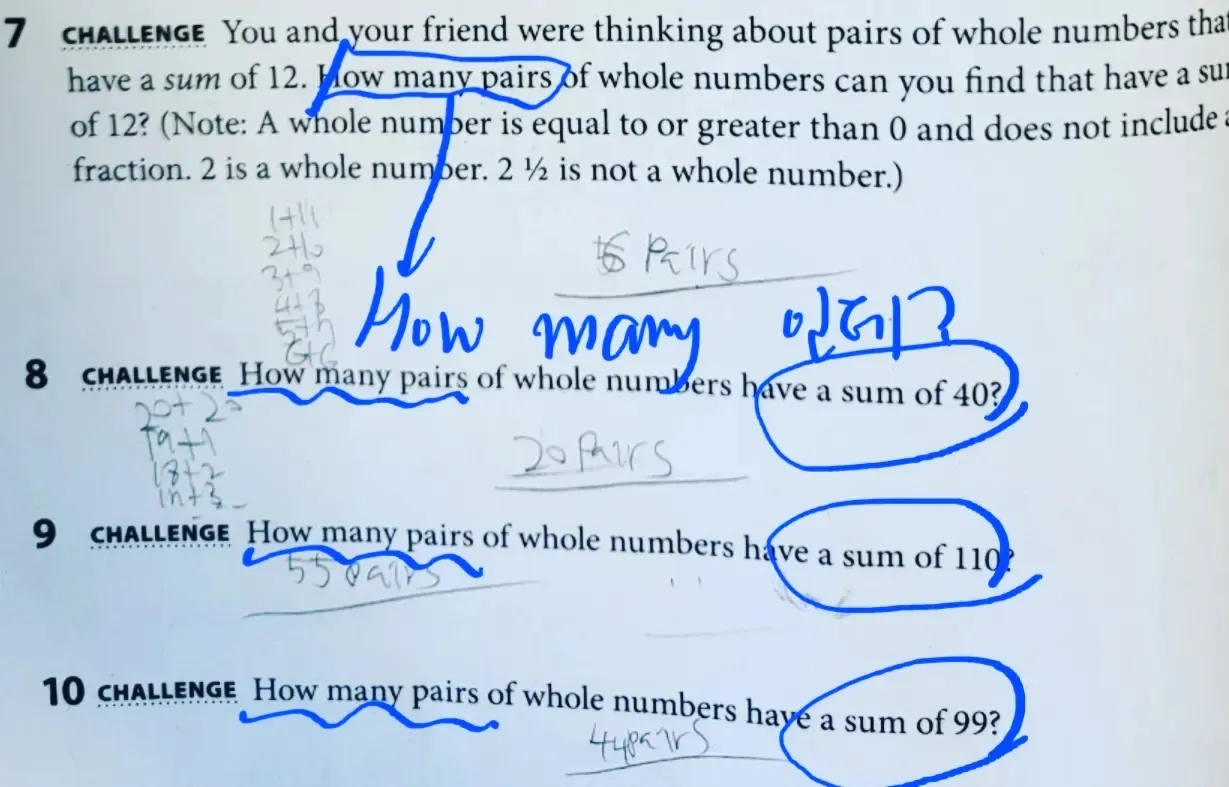 7 CHALLENGE You and your friend were thinking about pairs of whole numbers that
have a sum of 12. How many pairs of whole numbers can you find that have a sum
of 12? (Note: A whole number is equal to or greater than 0 and does not include a
fraction. 2 is a whole number. 2 ½ is not a whole number.)
1+11
2+10
3+9
4+8
6 Pairs
6+6
How many
8 CHALLENGE How many pairs of whole numbers have a sum of 40?
20+20
19+1
18+2
17+3
20 Pairs
9 CHALLENGE How many pairs of whole numbers have a sum of 110?
55 pairs
10 CHALLENGE How many pairs of whole numbers have a sum of 99?
44pairs